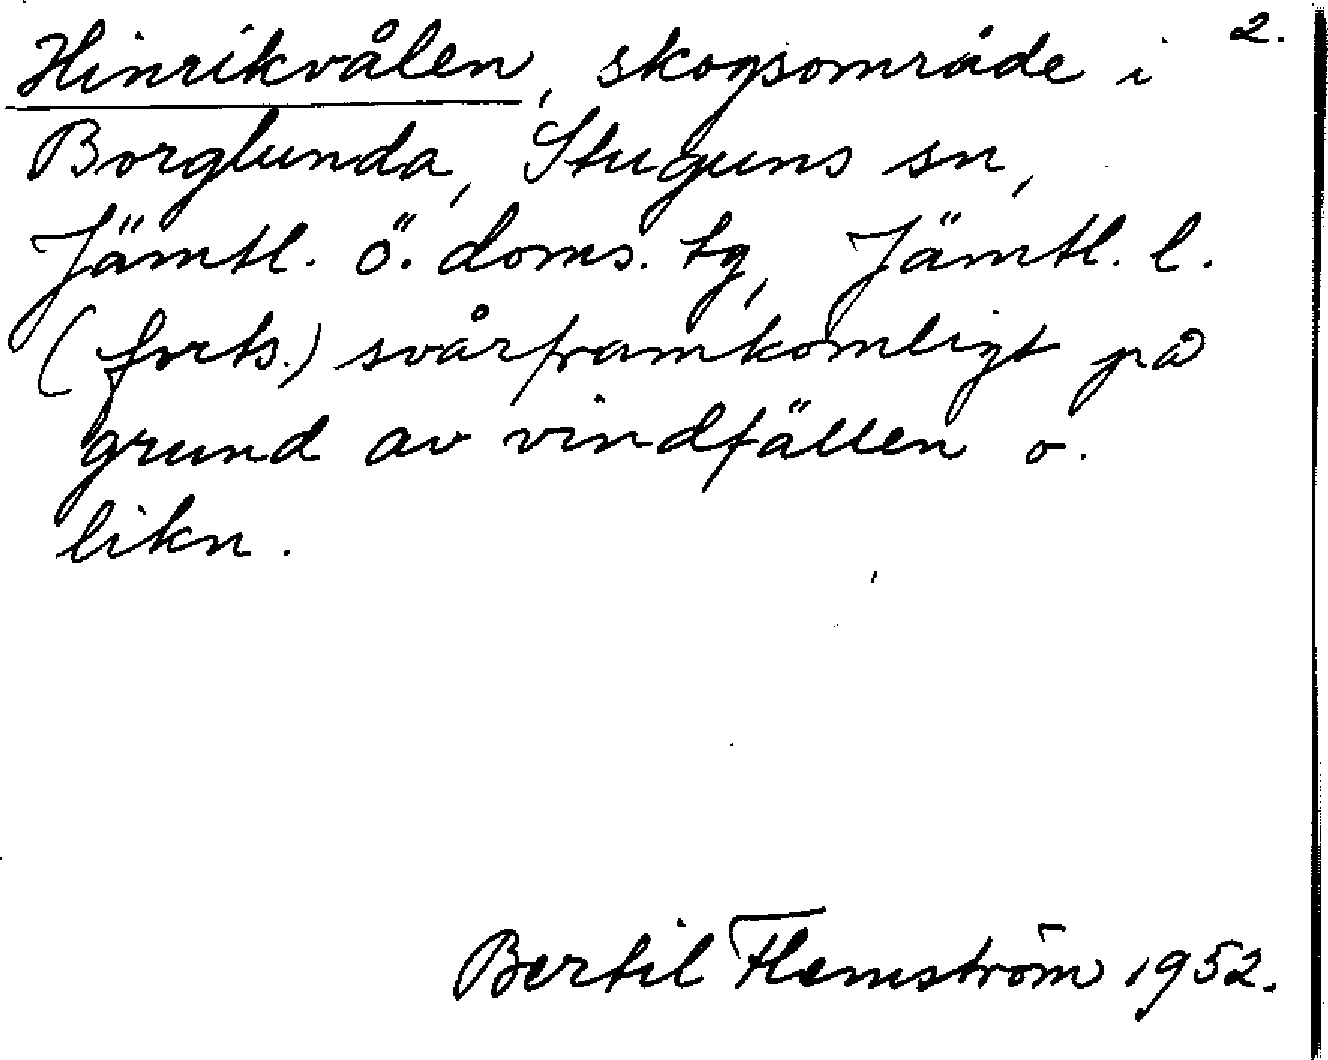 2.
Hinrikvålen, skogsområde i
Borglunda, Stuguns sn,
Jämtl. ö. doms. tg, Jämtl. l.
(forts.) svårframkomligt på
grund av vindfällen o.
likn.
Bertil Flemström 1952.